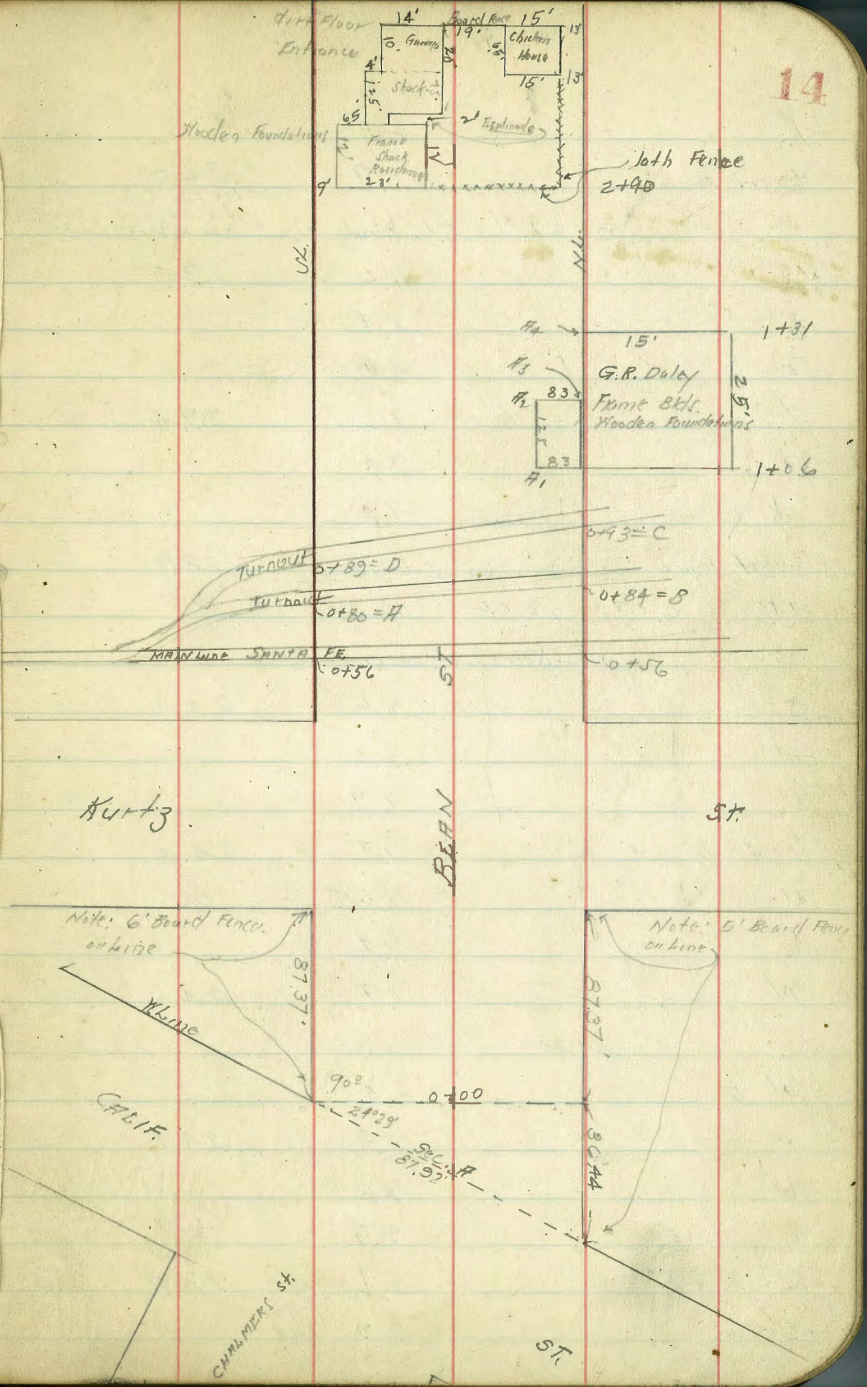 14
Dirt Floor
Entrance
14'
Board Fence
19'
15'
10'
Garage
20'
6.5'
Chicken
House
13'
4'
12.5'
Shack
15'
13'
6.5'
2'
Esplinade
Wooden Foundations
12'
Frame
Shack
Residence
12'
9'
23'
lath Fence
2+90
A4
15'
1+31
A3
G.R. Daley
25'
A2
8.3
Frame Bldg.
Wooden Foundations
12.5
8.3
A1
1+06
0+93=C
Turnout
0+89=D
Turnout
0+84=B
0+80=A
MAIN LINE SANTA FE
0+56
0+56
BEAN ST
Kurtz
St.
Note: 6' Board Fence
on Line
Note: 5' Board Fence
on Line
87.37'
87.37'
W Line
90°
0+00
24°29'
Sec. A
87.92
36.44
CALIF.
CHALMERS St.
ST.